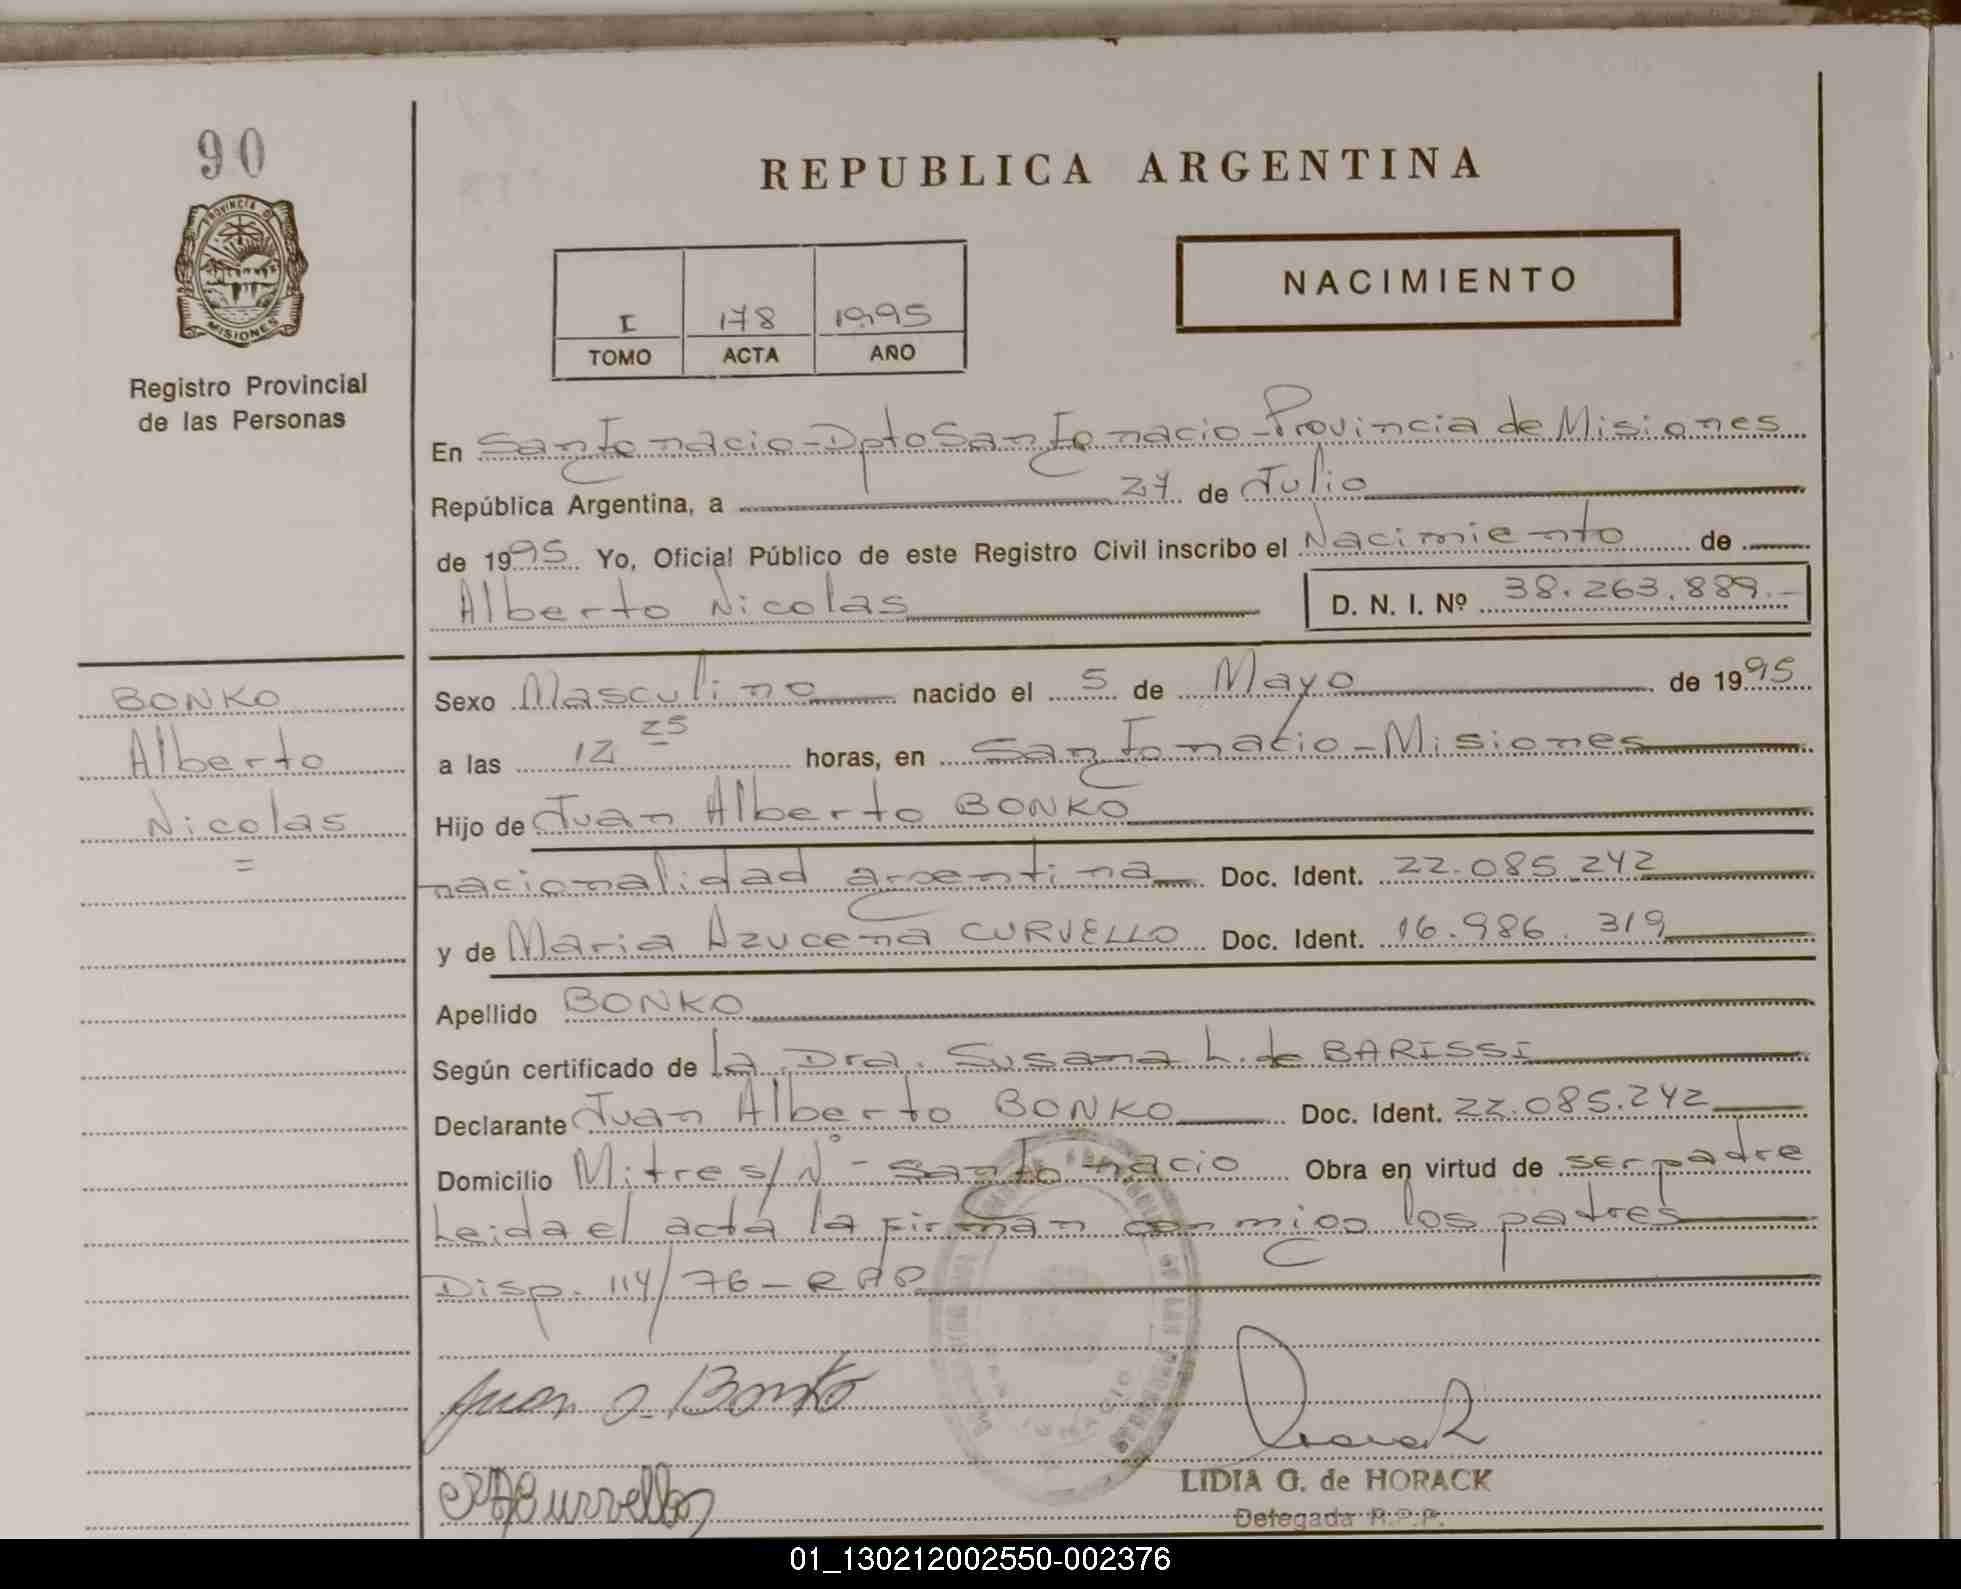 90
PROVINCIA DE
MISIONES
Registro Provincial
de las Personas
REPUBLICA ARGENTINA
I 178 1995
TOMO ACTA AÑO
NACIMIENTO
En San Ignacio - Dpto San Ignacio - Provincia de Misiones
República Argentina, a 27 de Julio
de 1995 Yo, Oficial Público de este Registro Civil inscribo el Nacimiento de
Alberto Nicolas D. N. I. Nº 38.263.889.-
BONKO
Alberto
Nicolas
=
Sexo Masculino nacido el 5 de Mayo de 1995
a las 12 25 horas, en San Ignacio - Misiones
Hijo de Juan Alberto BONKO
nacionalidad argentina Doc. Ident. 22.085.242
y de Maria Azucena CURVELLO Doc. Ident. 16.986.319
Apellido BONKO
Según certificado de la Dra. Susana L. de BARISSI
Declarante Juan Alberto BONKO Doc. Ident. 22.085.242
Domicilio Mitre s/Nº - San Ignacio Obra en virtud de ser padre
Leida el acta la firman conmigo los padres
Disp. 114/76 - RPP
Juan A. Bonko
Horack
MACurvello
LIDIA G. de HORACK
Delegada R.P.P.
01_130212002550-002376